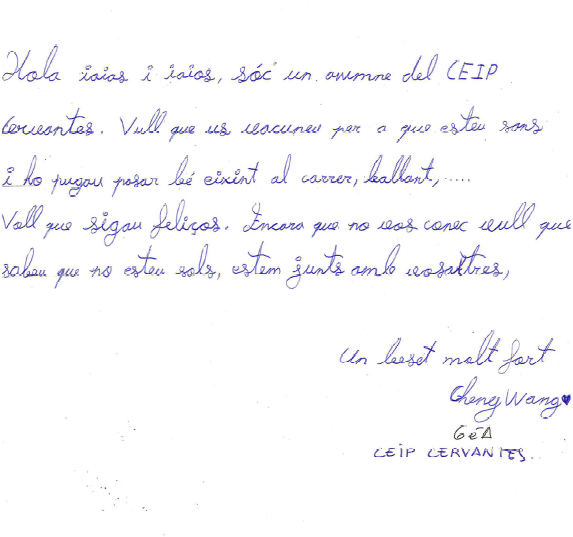 Hola iaias i iaios, sóc un alumne del CEIP
Cervantes. Vull que us vacuneu per a que esteu sans
i ho pugau pasar bé eixint al carrer, ballant,.....
Vull que sigau feliços. Encara que no vos conec vull que
sabeu que no esteu sols, estem junts amb vosaltres,
Un beset molt fort
Cheng Wang
6éA
CEIP CERVANTES.